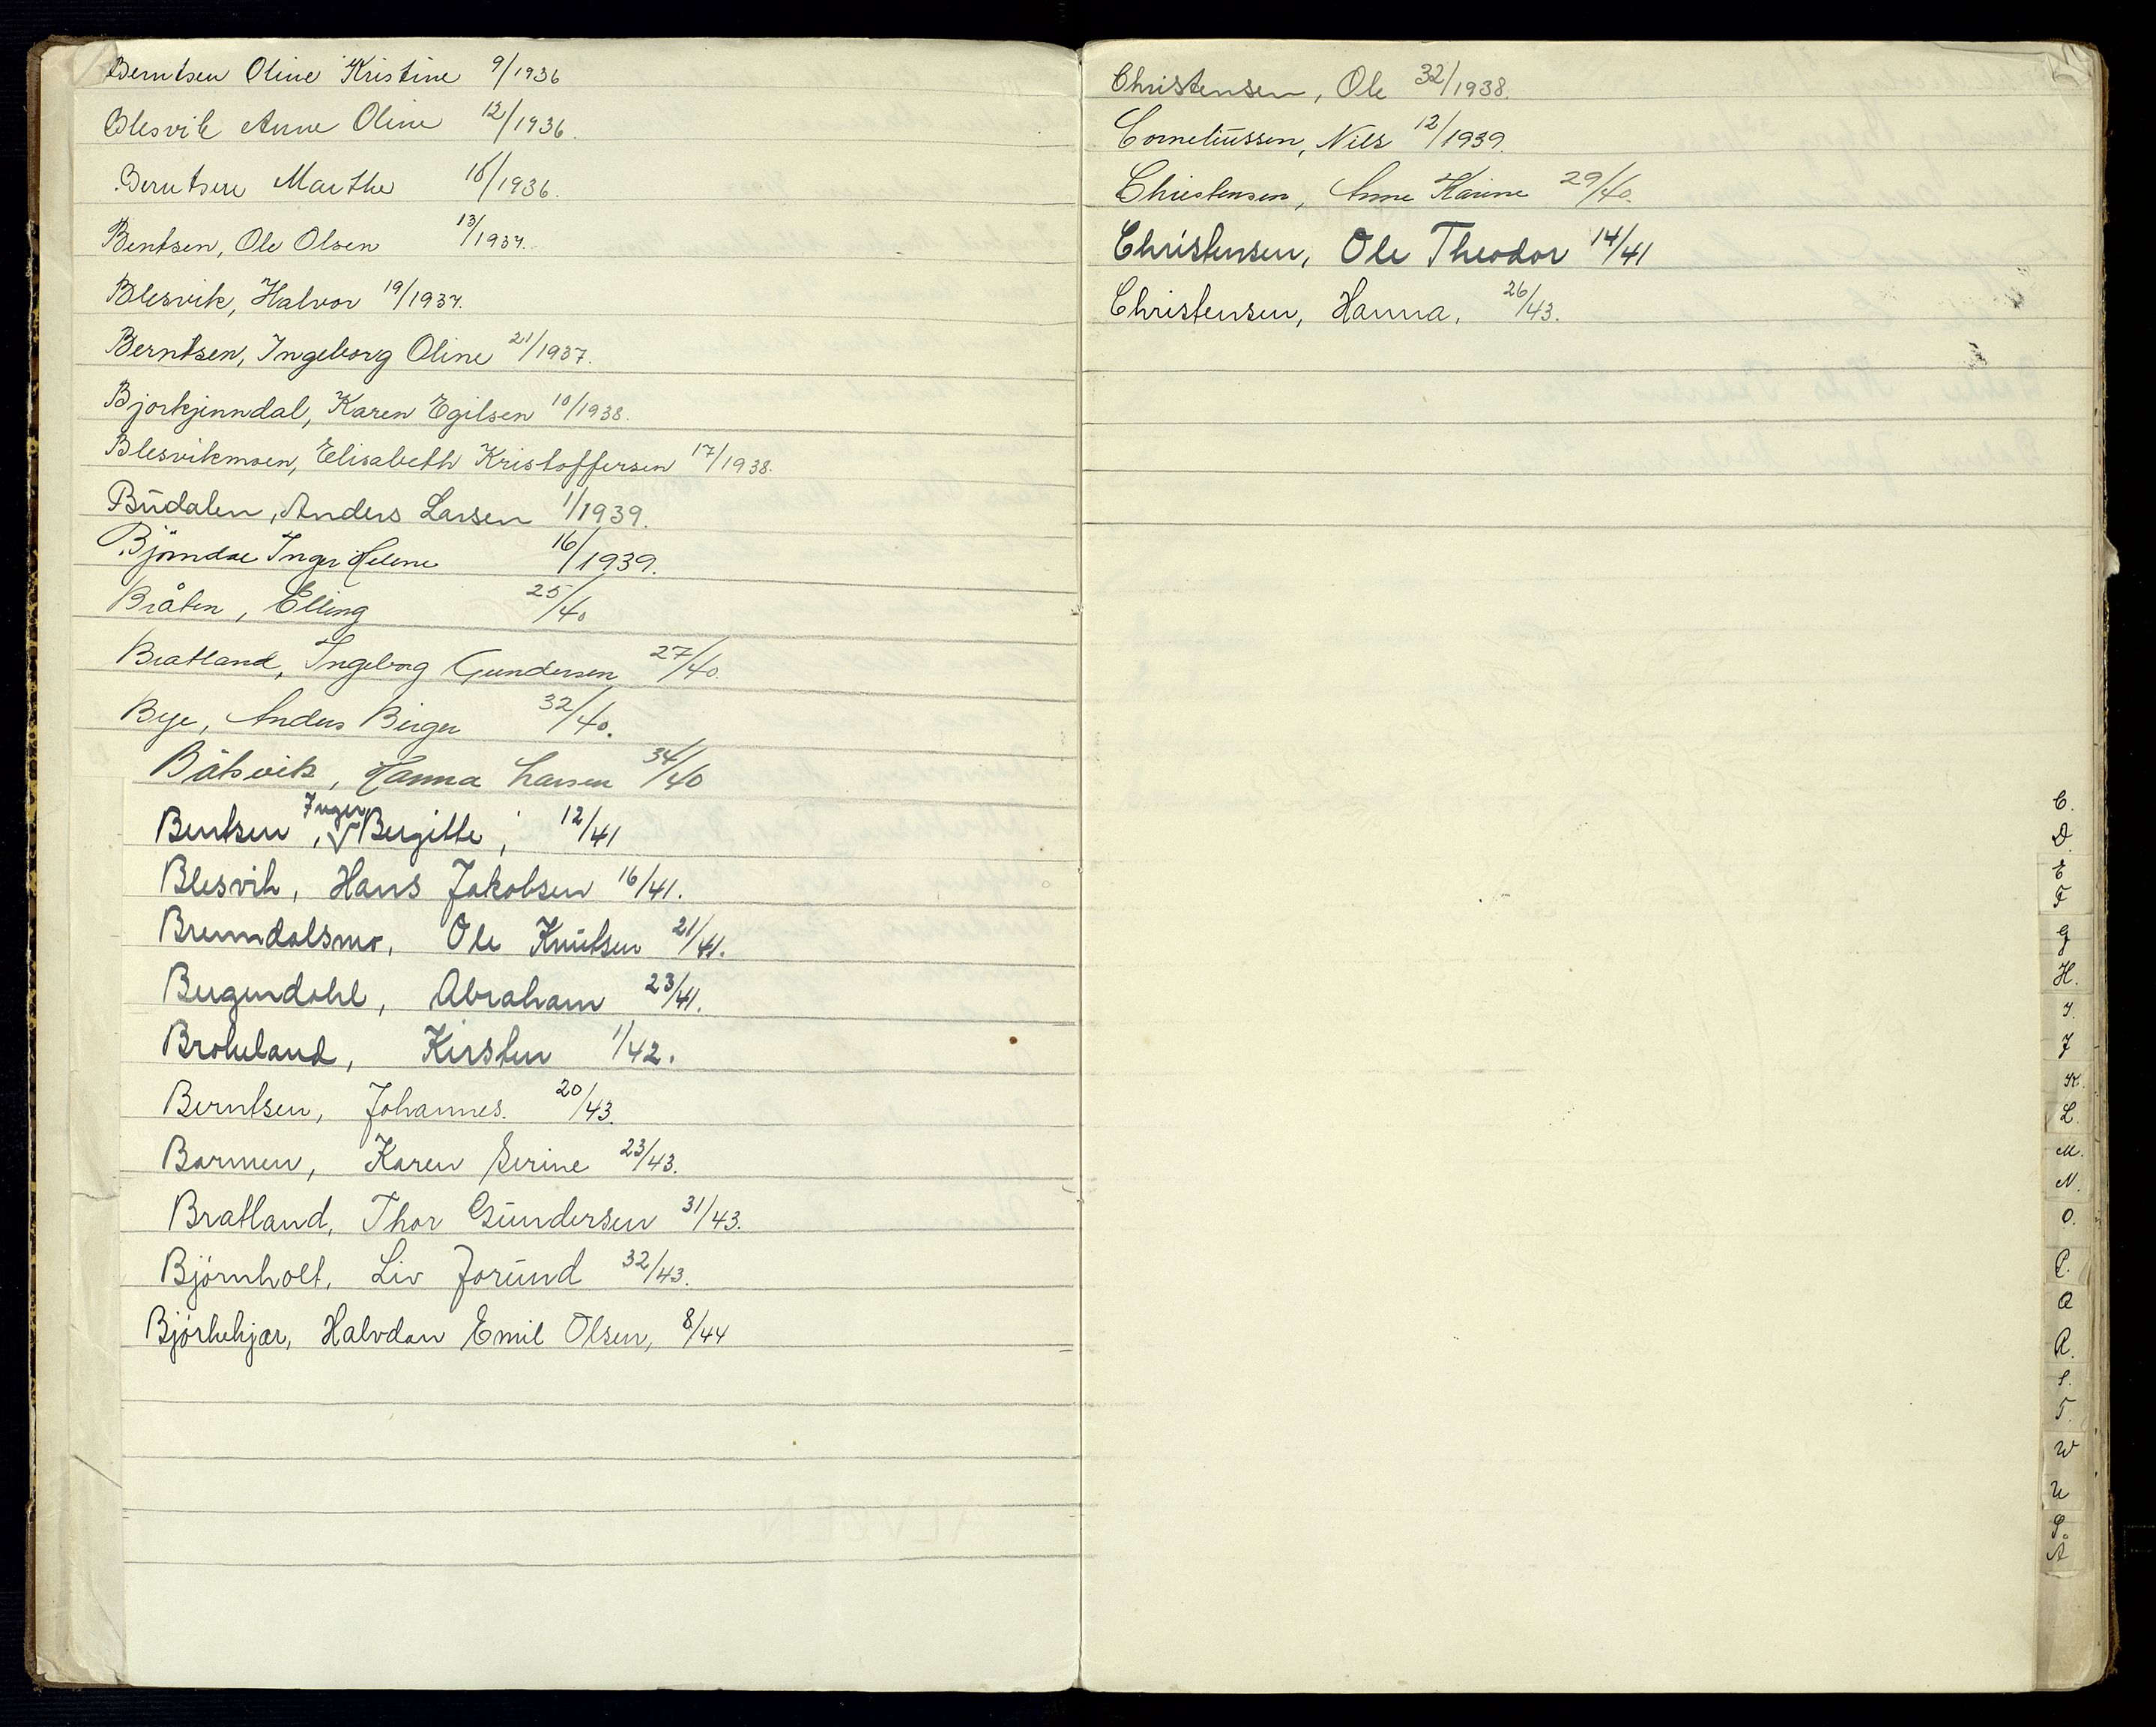 Berntsen Oline Kristine 9/1936
Blesvik Anne Oline 12/1936.
Berntsen Marthe 18/1936.
Bentsen, Ole Olsen 13/1937.
Blesvik, Halvor 19/1937.
Berntsen, Ingeborg Oline 21/1937.
Bjorkjinndal, Karen Egilsen 10/1938.
Blesvikmoen, Elisabeth Kristoffersen 17/1938.
Budalen, Anders Larsen 1/1939.
Björndal Inger Helene 16/1939.
Bråten, Elling 25/40
Bratland, Ingeborg Gundersen 27/40.
Bye, Anders Birger 32/40.
Båtsvik, Hanna Larsen 34/40
Bentsen, Inger Bergitte, 12/41
Blesvik, Hans Jakobsen 16/41.
Bremdalsmo, Ole Knutsen 21/41.
Bergendahl, Abraham 23/41.
Brokeland, Kirsten 1/42.
Berntsen, Johannes. 20/43.
Barmen, Karen Serine 23/43.
Bratland, Thor Gundersen 31/43.
Bjørnholt, Liv Jorund 32/43.
Bjørkekjær, Halvdan Emil Olsen, 8/44
Christensen, Ole 32/1938.
Corneliussen, Nils 12/1939.
Christensen, Anne Karine 29/40.
Christensen, Ole Theodor 14/41
Christensen, Hanna. 26/43.
C.
D.
E
F
G
H.
I.
J
K.
L.
M.
N.
O.
P.
Q
R.
S.
T.
W
U